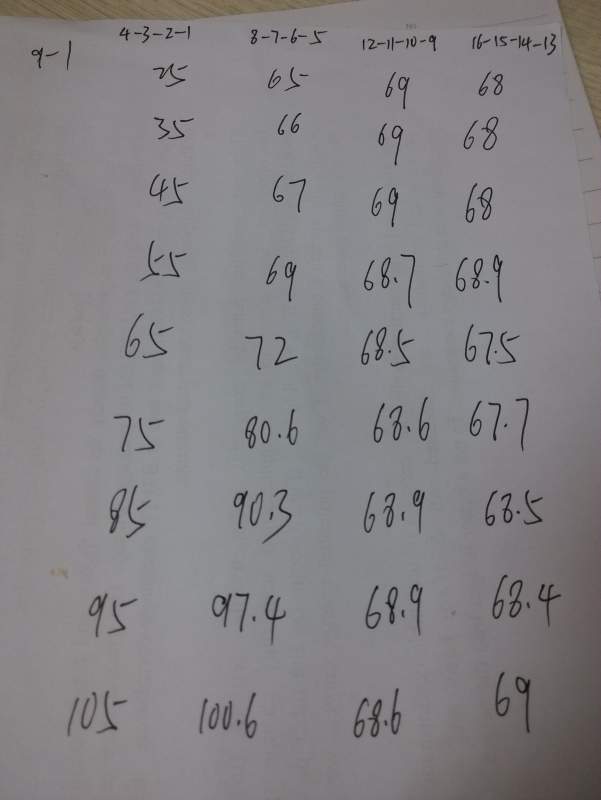 9-1 4-3-2-1 8-7-6-5 12-11-10-9 16-15-14-13
25 65 69 68
35 66 69 68
45 67 69 68
55 69 68.7 68.9
65 72 68.5 67.5
75 80.6 68.6 67.7
85 90.3 68.9 68.5
95 97.4 68.9 68.4
105 100.6 68.6 69